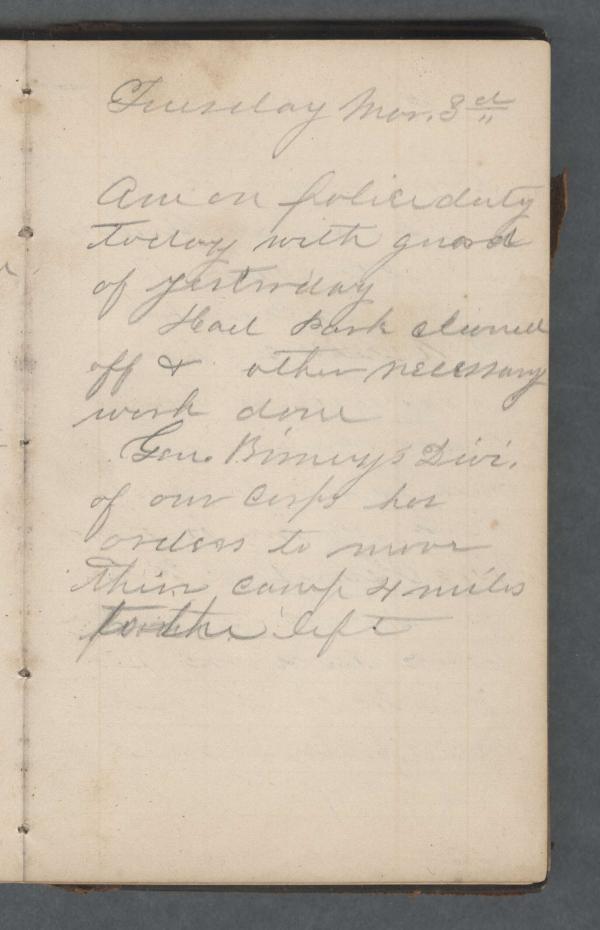 Tuesday Mar. 3rd "
Am on police duty
today with guard
of yesterday
Had Park cleaned
off & other necessary
work done
Gen. Birneys Divi.
of our Corps has
orders to move
their camp 4 miles
to the left